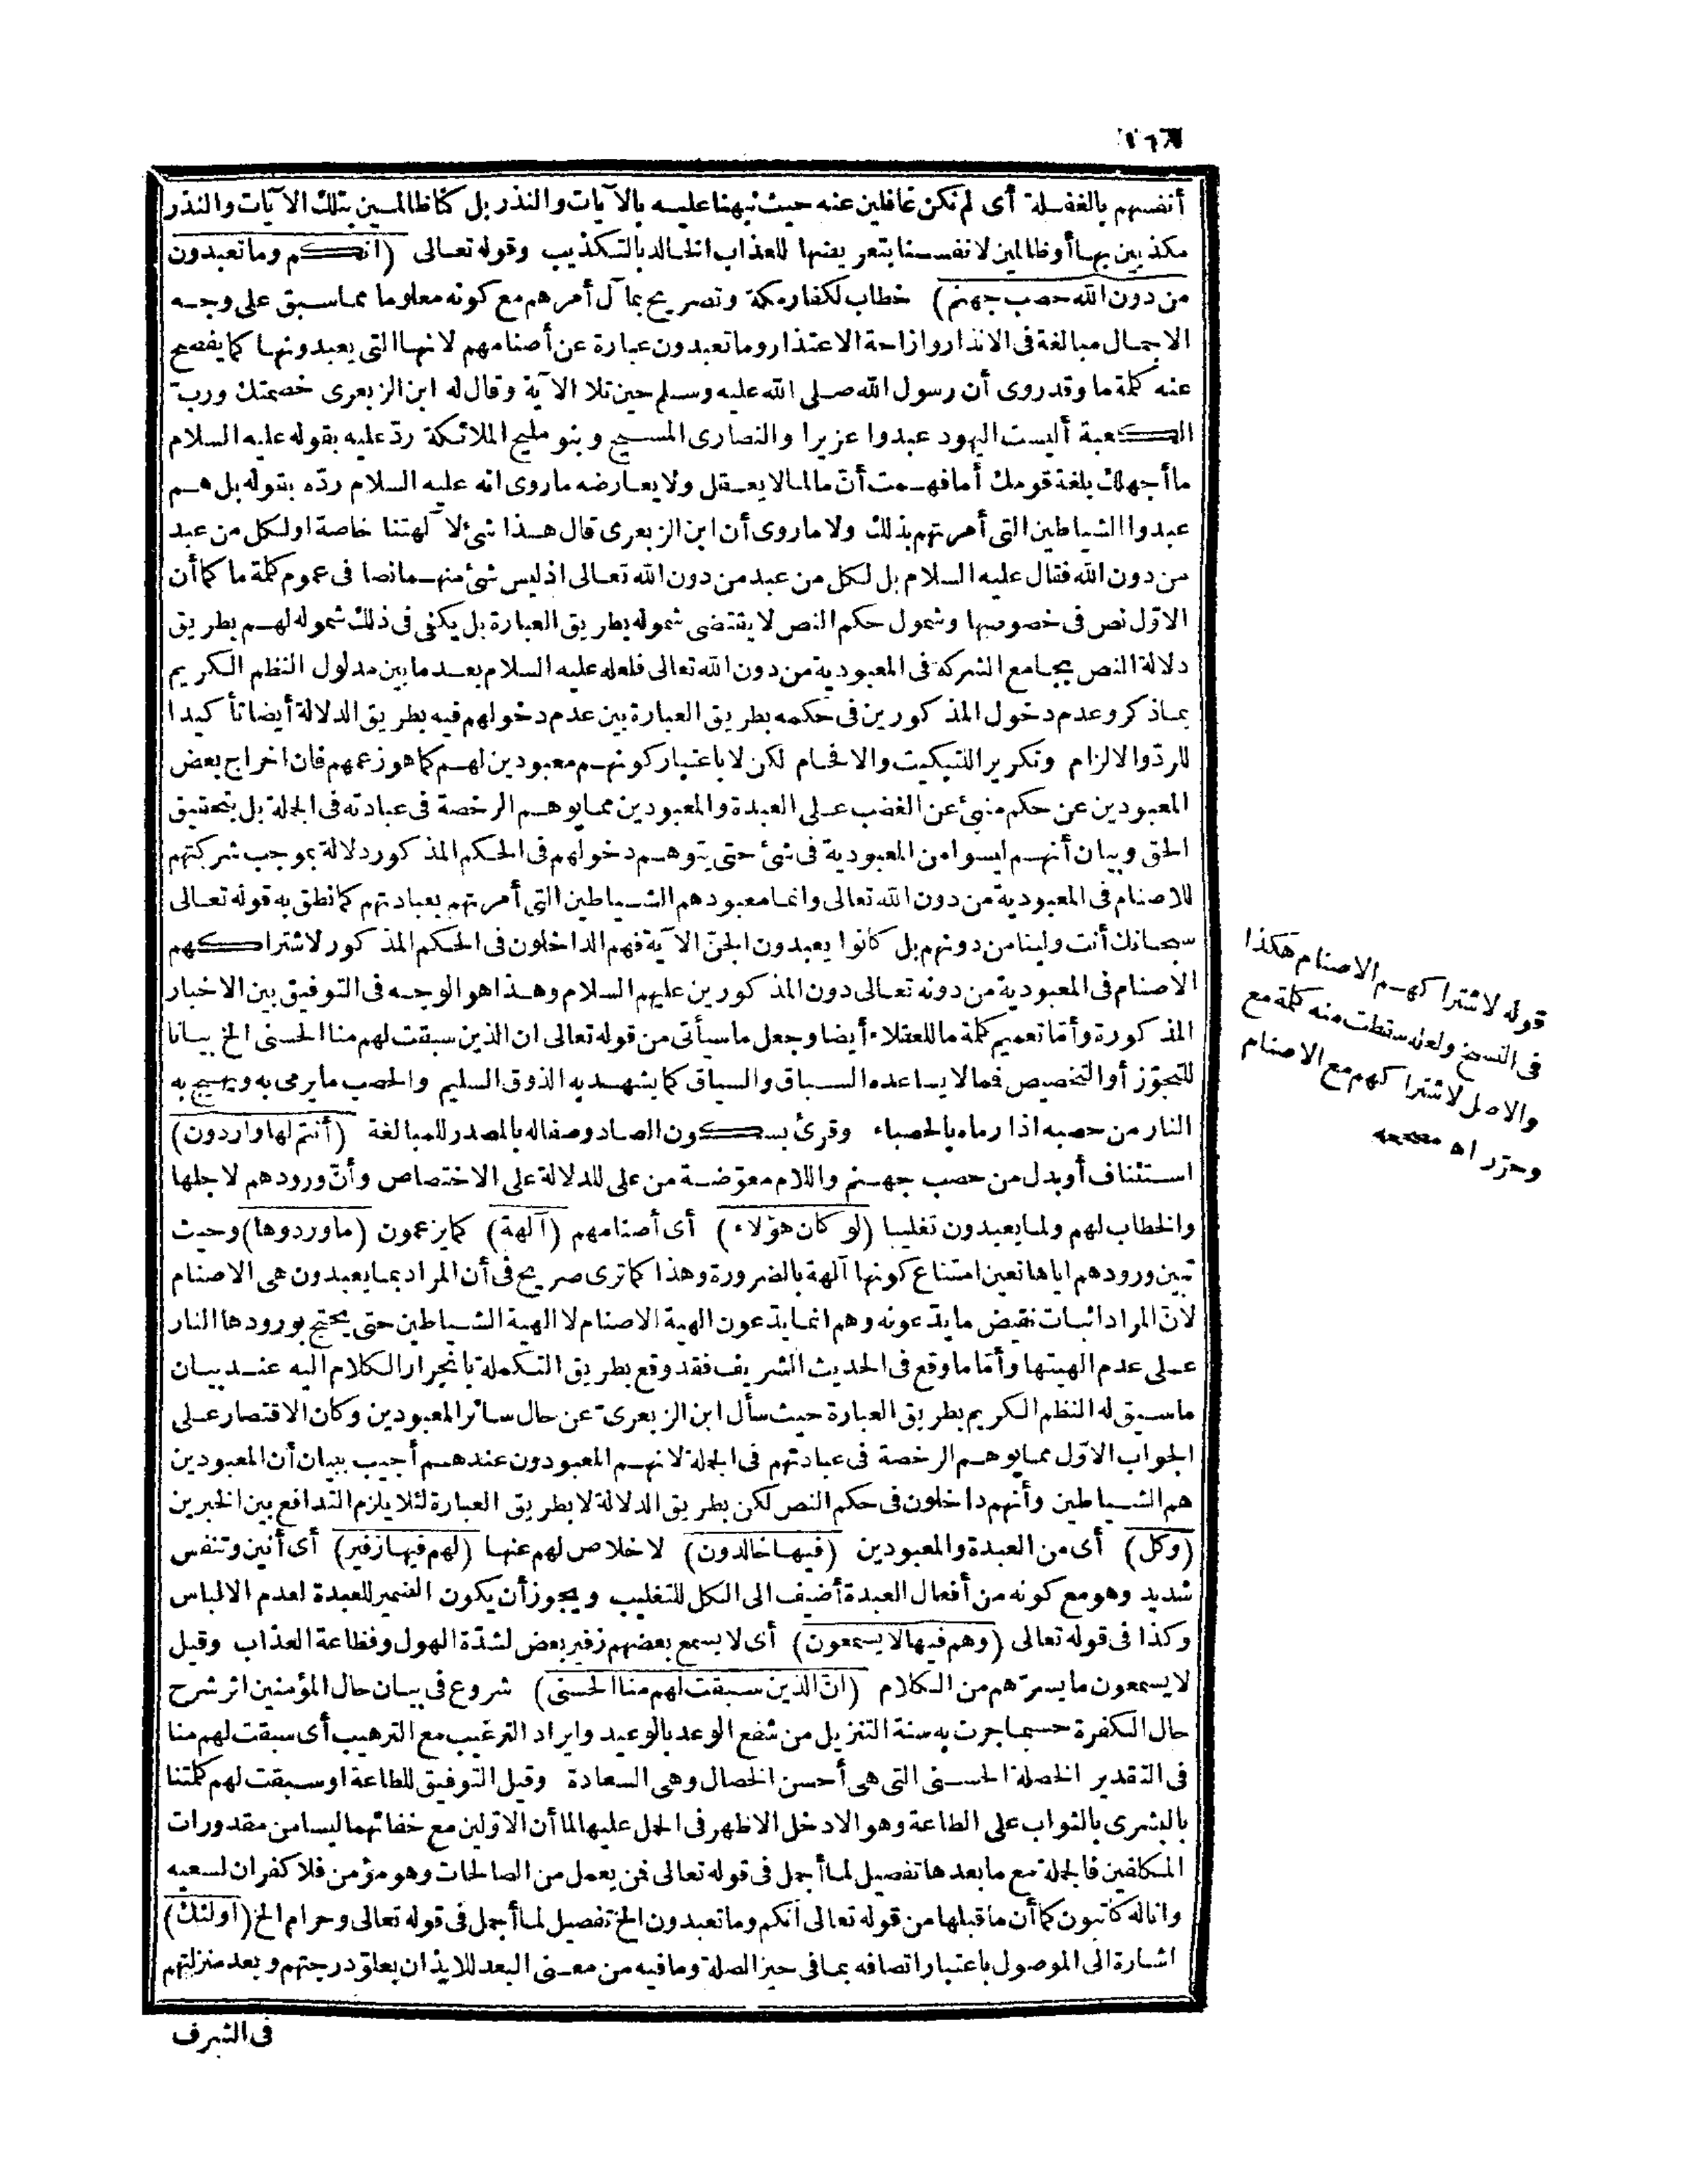 أنفسهم بالغفلة أى لم نكن غافلين عنه حيث نبهنا عليه بالآيات والنذر بل كنا ظالمين بتلك الآيات والنذر
مكذبين بها أو ظالمين لانفسنا بتعريضها للعذاب الخالد بالتكذيب وقوله تعالى (انكم وما تعبدون
من دون الله حصب جهنم) خطاب لكفار مكة وتصريح بمآل أمرهم مع كونه معلوما مما سبق على وجه
الاجمال مبالغة فى الانذار وازاحة الاعتذار وما تعبدون عبارة عن أصنامهم لانها التى يعبدونها كما يفصح
عنه كلمة ما وقد روى أن رسول الله صلى الله عليه وسلم حين تلا الآية وقال له ابن الزبعرى خصمتك ورب
الكعبة أليست اليهود عبدوا عزيرا والنصارى المسيح وبنو مليح الملائكة ردّ عليه بقوله عليه السلام
ما أجهلك بلغة قومك أما فهمت أنّ ما لما لا يعقل ولا يعارضه ما روى انه عليه السلام ردّه بقوله بل هم
عبدوا الشياطين التى أمرتهم بذلك ولا ما روى أن ابن الزبعرى قال هذا شئ لآلهتنا خاصة اولكل من عبد
من دون الله فقال عليه السلام بل لكل من عبد من دون الله تعالى اذ ليس شئ منهما نصا فى عموم كلمة ما كما أن
الاوّل نص فى خصوصها وشمول حكم النص لا يقتضى شموله بطريق العبارة بل يكفى فى ذلك شموله لهم بطريق
دلالة النص بجامع الشركة فى المعبودية من دون الله تعالى فلعله عليه السلام بعد ما بين مدلول النظم الكريم
بما ذكر وعدم دخول المذكورين فى حكمه بطريق العبارة بين عدم دخولهم فيه بطريق الدلالة أيضا تأكيدا
للردّ والالزام وتكرير التبكيت والافحام لكن لا باعتبار كونهم معبودين لهم كما هو زعمهم فان اخراج بعض
المعبودين عن حكم منبئ عن الغضب على العبدة والمعبودين مما يوهم الرخصة فى عبادته فى الجملة بل بتحقيق
الحق وبيان أنهم ليسوا من المعبودية فى شئ حتى يتوهم دخولهم فى الحكم المذكور دلالة بموجب شركتهم
للاصنام فى المعبودية من دون الله تعالى وانما معبودهم الشياطين التى أمرتهم بعبادتهم كما نطق به قوله تعالى
سبحانك أنت ولينا من دونهم بل كانوا يعبدون الجنّ الآية فهم الداخلون فى الحكم المذكور لاشتراكهم
الاصنام فى المعبودية من دونه تعالى دون المذكورين عليهم السلام وهذا هو الوجه فى التوفيق بين الاخبار
المذكورة وأمّا تعميم كلمة ما للعقلاء أيضا وجعل ما سيأتى من قوله تعالى ان الذين سبقت لهم منا الحسنى الخ بيانا
للتجوّز أو التخصيص فما لا يساعده السباق والسياق كما يشهد به الذوق السليم والحصب ما يرمى به ويهيج به
النار من حصبه اذا رماه بالحصباء وقرئ بسكون الصاد وصفاله بالمصدر للمبالغة (أنتم لها واردون)
استئناف أو بدل من حصب جهنم واللام معوّضة من على للدلالة على الاختصاص وأنّ ورودهم لاجلها
والخطاب لهم ولما يعبدون تغليبا (لو كان هؤلاء) أى أصنامهم (آلهة) كما يزعمون (ما وردوها) وحيث
تبين ورودهم اياها تعين امتناع كونها آلهة بالضرورة وهذا كما ترى صريح فى أن المراد بما يعبدون هى الاصنام
لانّ المراد اثبات نقيض ما يدّعونه وهم انما يدّعون الهية الاصنام لا الهية الشياطين حتى يحتج بورودها النار
على عدم الهيتها وأمّا ما وقع فى الحديث الشريف فقد وقع بطريق التكملة بانجرار الكلام اليه عند بيان
ما سيق له النظم الكريم بطريق العبارة حيث سأل ابن الزبعرى عن حال سائر المعبودين وكان الاقتصار على
الجواب الاوّل مما يوهم الرخصة فى عبادتهم فى الجملة لانهم المعبودون عندهم أجيب ببيان أن المعبودين
هم الشياطين وأنهم داخلون فى حكم النص لكن بطريق الدلالة لا بطريق العبارة لئلا يلزم التدافع بين الخبرين
(وكل) أى من العبدة والمعبودين (فيها خالدون) لا خلاص لهم عنها (لهم فيها زفير) أى أنين وتنفس
شديد وهو مع كونه من أفعال العبدة أضيف الى الكل للتغليب ويجوز أن يكون الضمير للعبدة لعدم الالباس
وكذا فى قوله تعالى (وهم فيها لا يسمعون) أى لا يسمع بعضهم زفير بعض لشدّة الهول وفظاعة العذاب وقيل
لا يسمعون ما يسرّهم من الكلام (انّ الذين سبقت لهم منا الحسنى) شروع فى بيان حال المؤمنين اثر شرح
حال الكفرة حسبما جرت به سنة التنزيل من شفع الوعد بالوعيد وايراد الترغيب مع الترهيب أى سبقت لهم منا
فى التقدير الخصلة الحسنى التى هى أحسن الخصال وهى السعادة وقيل التوفيق للطاعة او سبقت لهم كلمتنا
بالبشرى بالثواب على الطاعة وهو الادخل الاظهر فى الحمل عليها لما أن الاوّلين مع خفائهما ليسا من مقدورات
المكلفين فالجملة مع ما بعدها تفصيل لما أجمل فى قوله تعالى فمن يعمل من الصالحات وهو مؤمن فلا كفران لسعيه
وانا له كاتبون كما أن ما قبلها من قوله تعالى انكم وما تعبدون الخ تفصيل لما أجمل فى قوله تعالى وحرام الخ (اولئك)
اشارة الى الموصول باعتبار اتصافه بما فى حيز الصلة وما فيه من معنى البعد للايذان بعلوّ درجتهم وبعد منزلتهم
فى الشرف
قوله لاشتراكهم الاصنام هكذا
فى النسخ ولعله سقطت منه كلمة مع
والاصل لاشتراكهم مع الاصنام
وحرّر اه